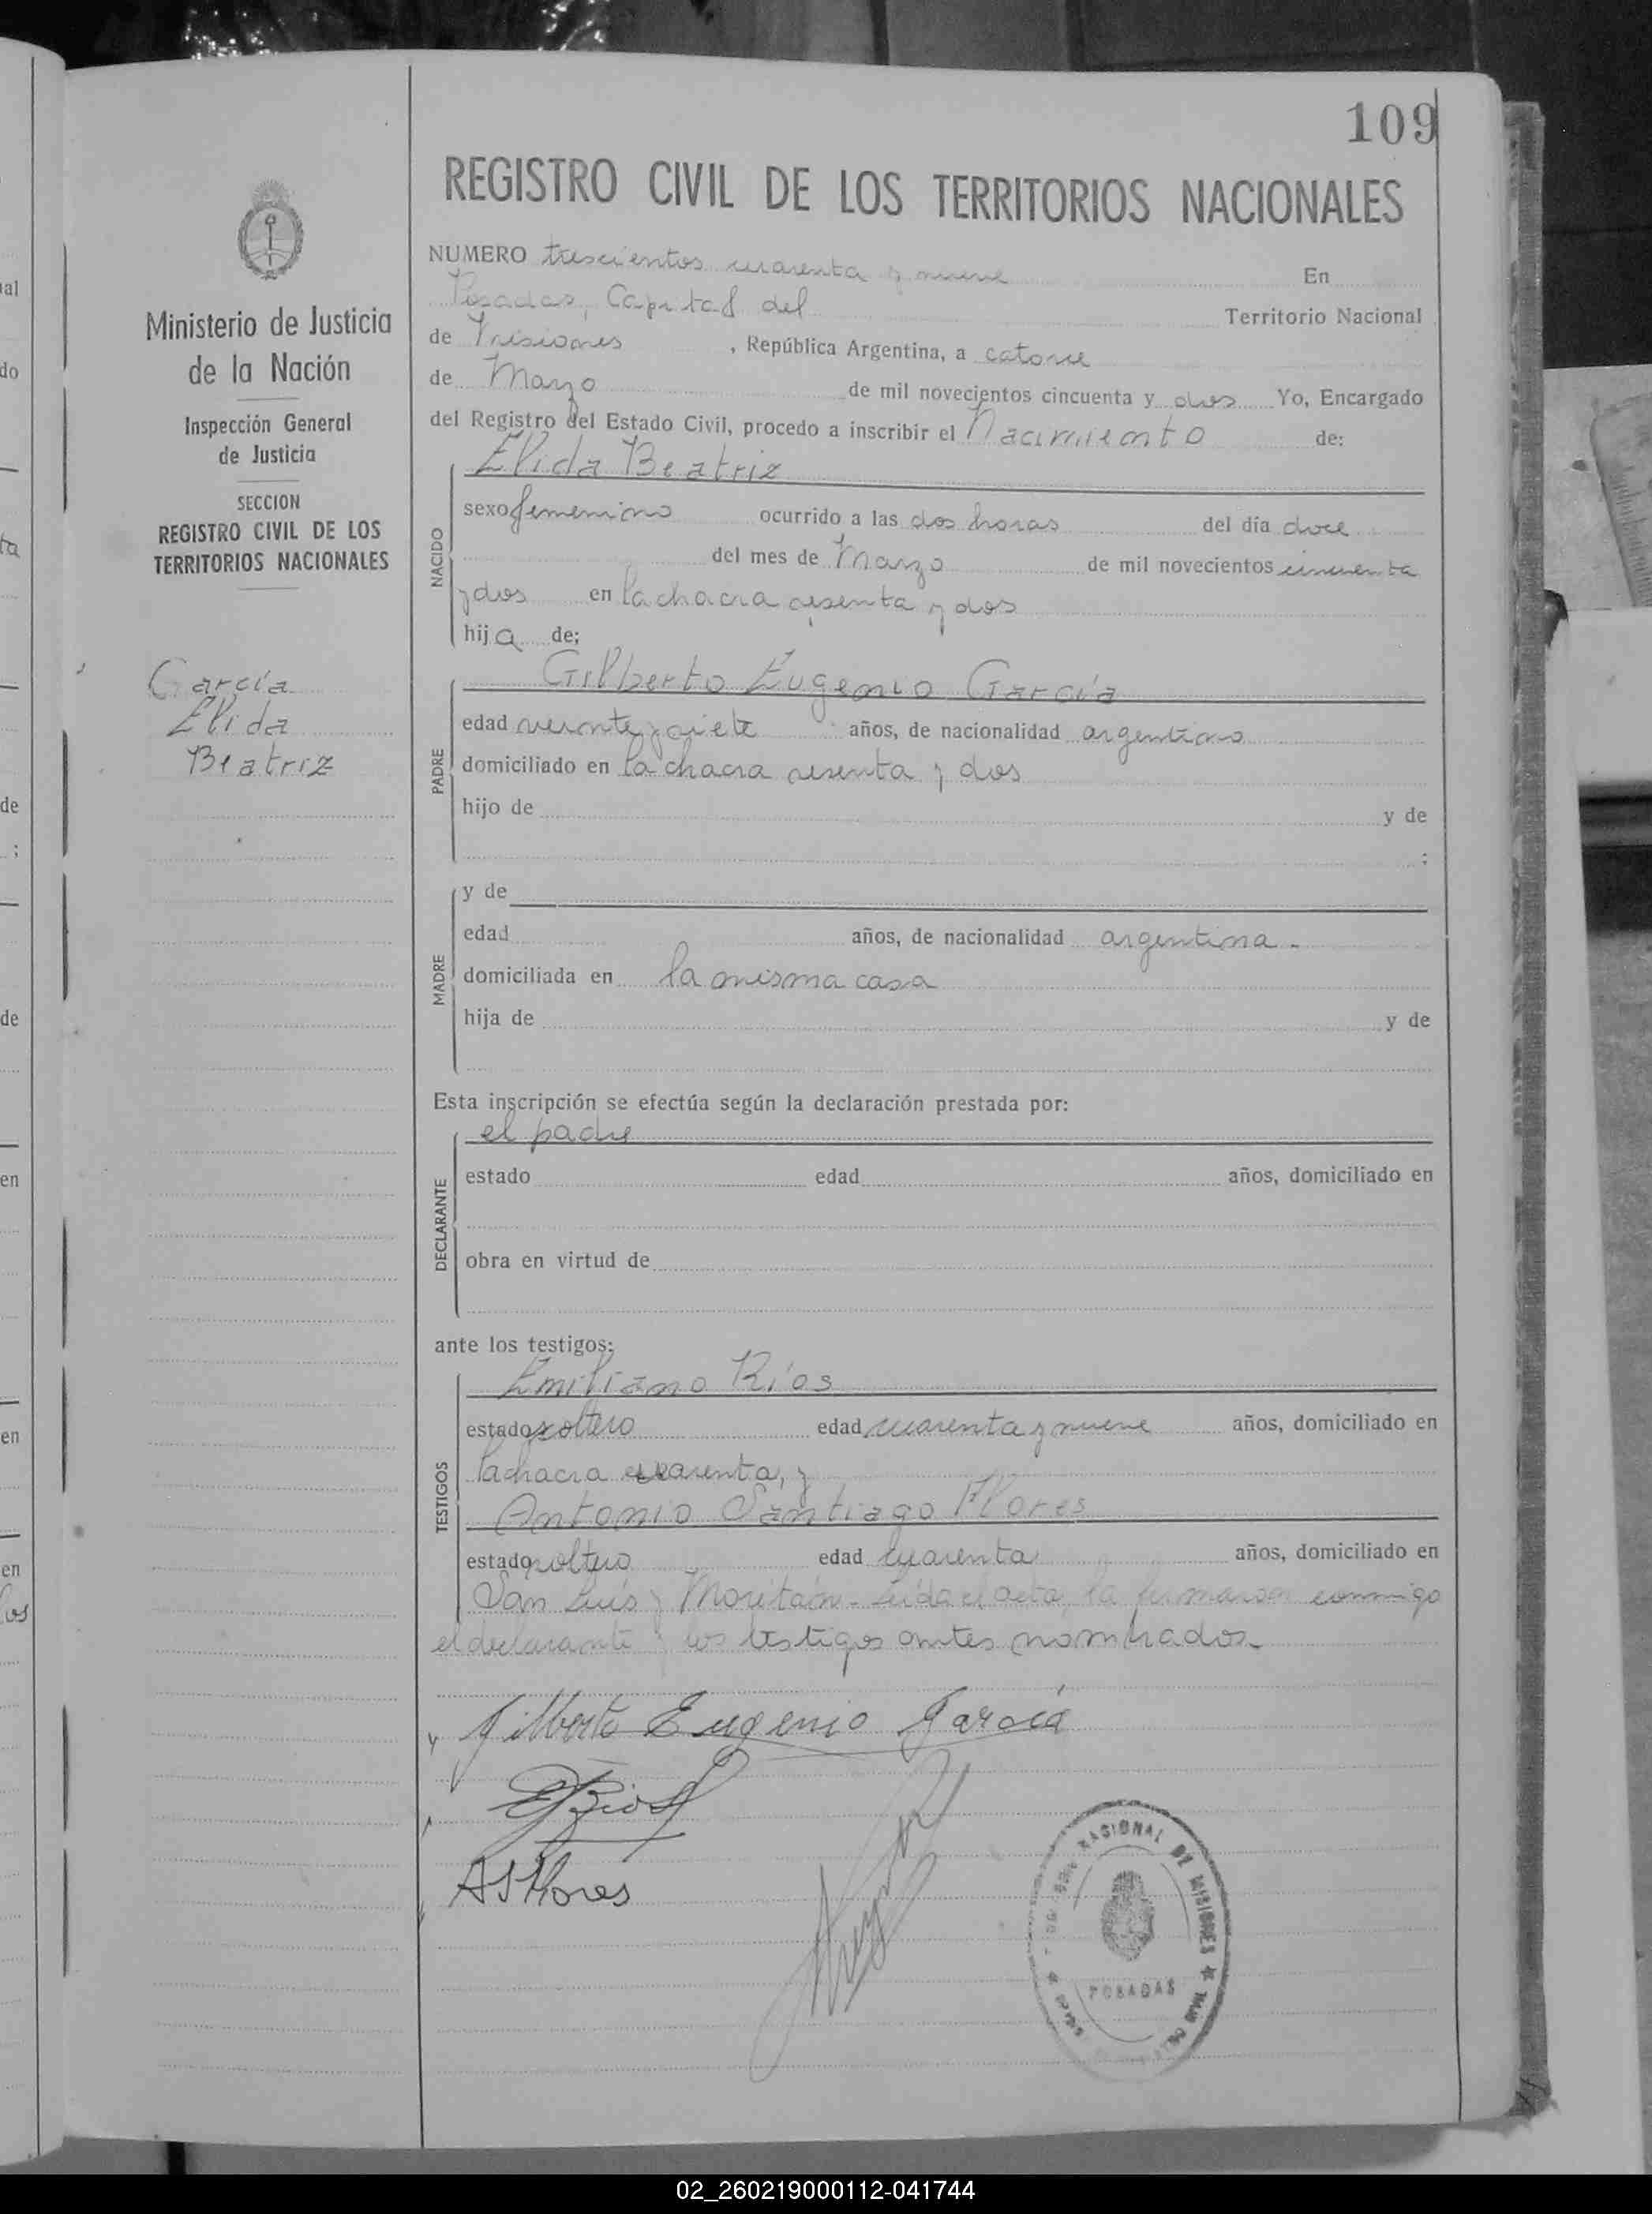 109
REGISTRO CIVIL DE LOS TERRITORIOS NACIONALES
Ministerio de Justicia
de la Nación
Inspección General
de Justicia
SECCION
REGISTRO CIVIL DE LOS
TERRITORIOS NACIONALES
García
Elida
Beatriz
NUMERO trescientos cuarenta y nueve En
Posadas, Capital del Territorio Nacional
de Misiones, República Argentina, a catorce
de Marzo de mil novecientos cincuenta y dos Yo, Encargado
del Registro del Estado Civil, procedo a inscribir el Nacimiento de:
NACIDO
Elida Beatriz
sexo femenino ocurrido a las dos horas del día doce
del mes de Marzo de mil novecientos cincuenta
y dos en la chacra sesenta y dos
hija de;
PADRE
Gilberto Eugenio García
edad veinte y siete años, de nacionalidad argentino
domiciliado en la chacra sesenta y dos
hijo de y de
;
MADRE
y de
edad años, de nacionalidad argentina.
domiciliada en la misma casa
hija de y de
Esta inscripción se efectúa según la declaración prestada por:
DECLARANTE
el padre
estado edad años, domiciliado en
obra en virtud de
ante los testigos:
TESTIGOS
Emiliano Ríos
estado soltero edad cuarenta y nueve años, domiciliado en
la chacra cuarenta, y
Antonio Santiago Flores
estado soltero edad cuarenta años, domiciliado en
San Luis y Moritán. Leída el acta, la firmaron conmigo
el declarante y los testigos antes nombrados.
Gilberto Eugenio García
E Rios
A S Flores
NACIONAL DE MISIONES
POSADAS
02_260219000112-041744